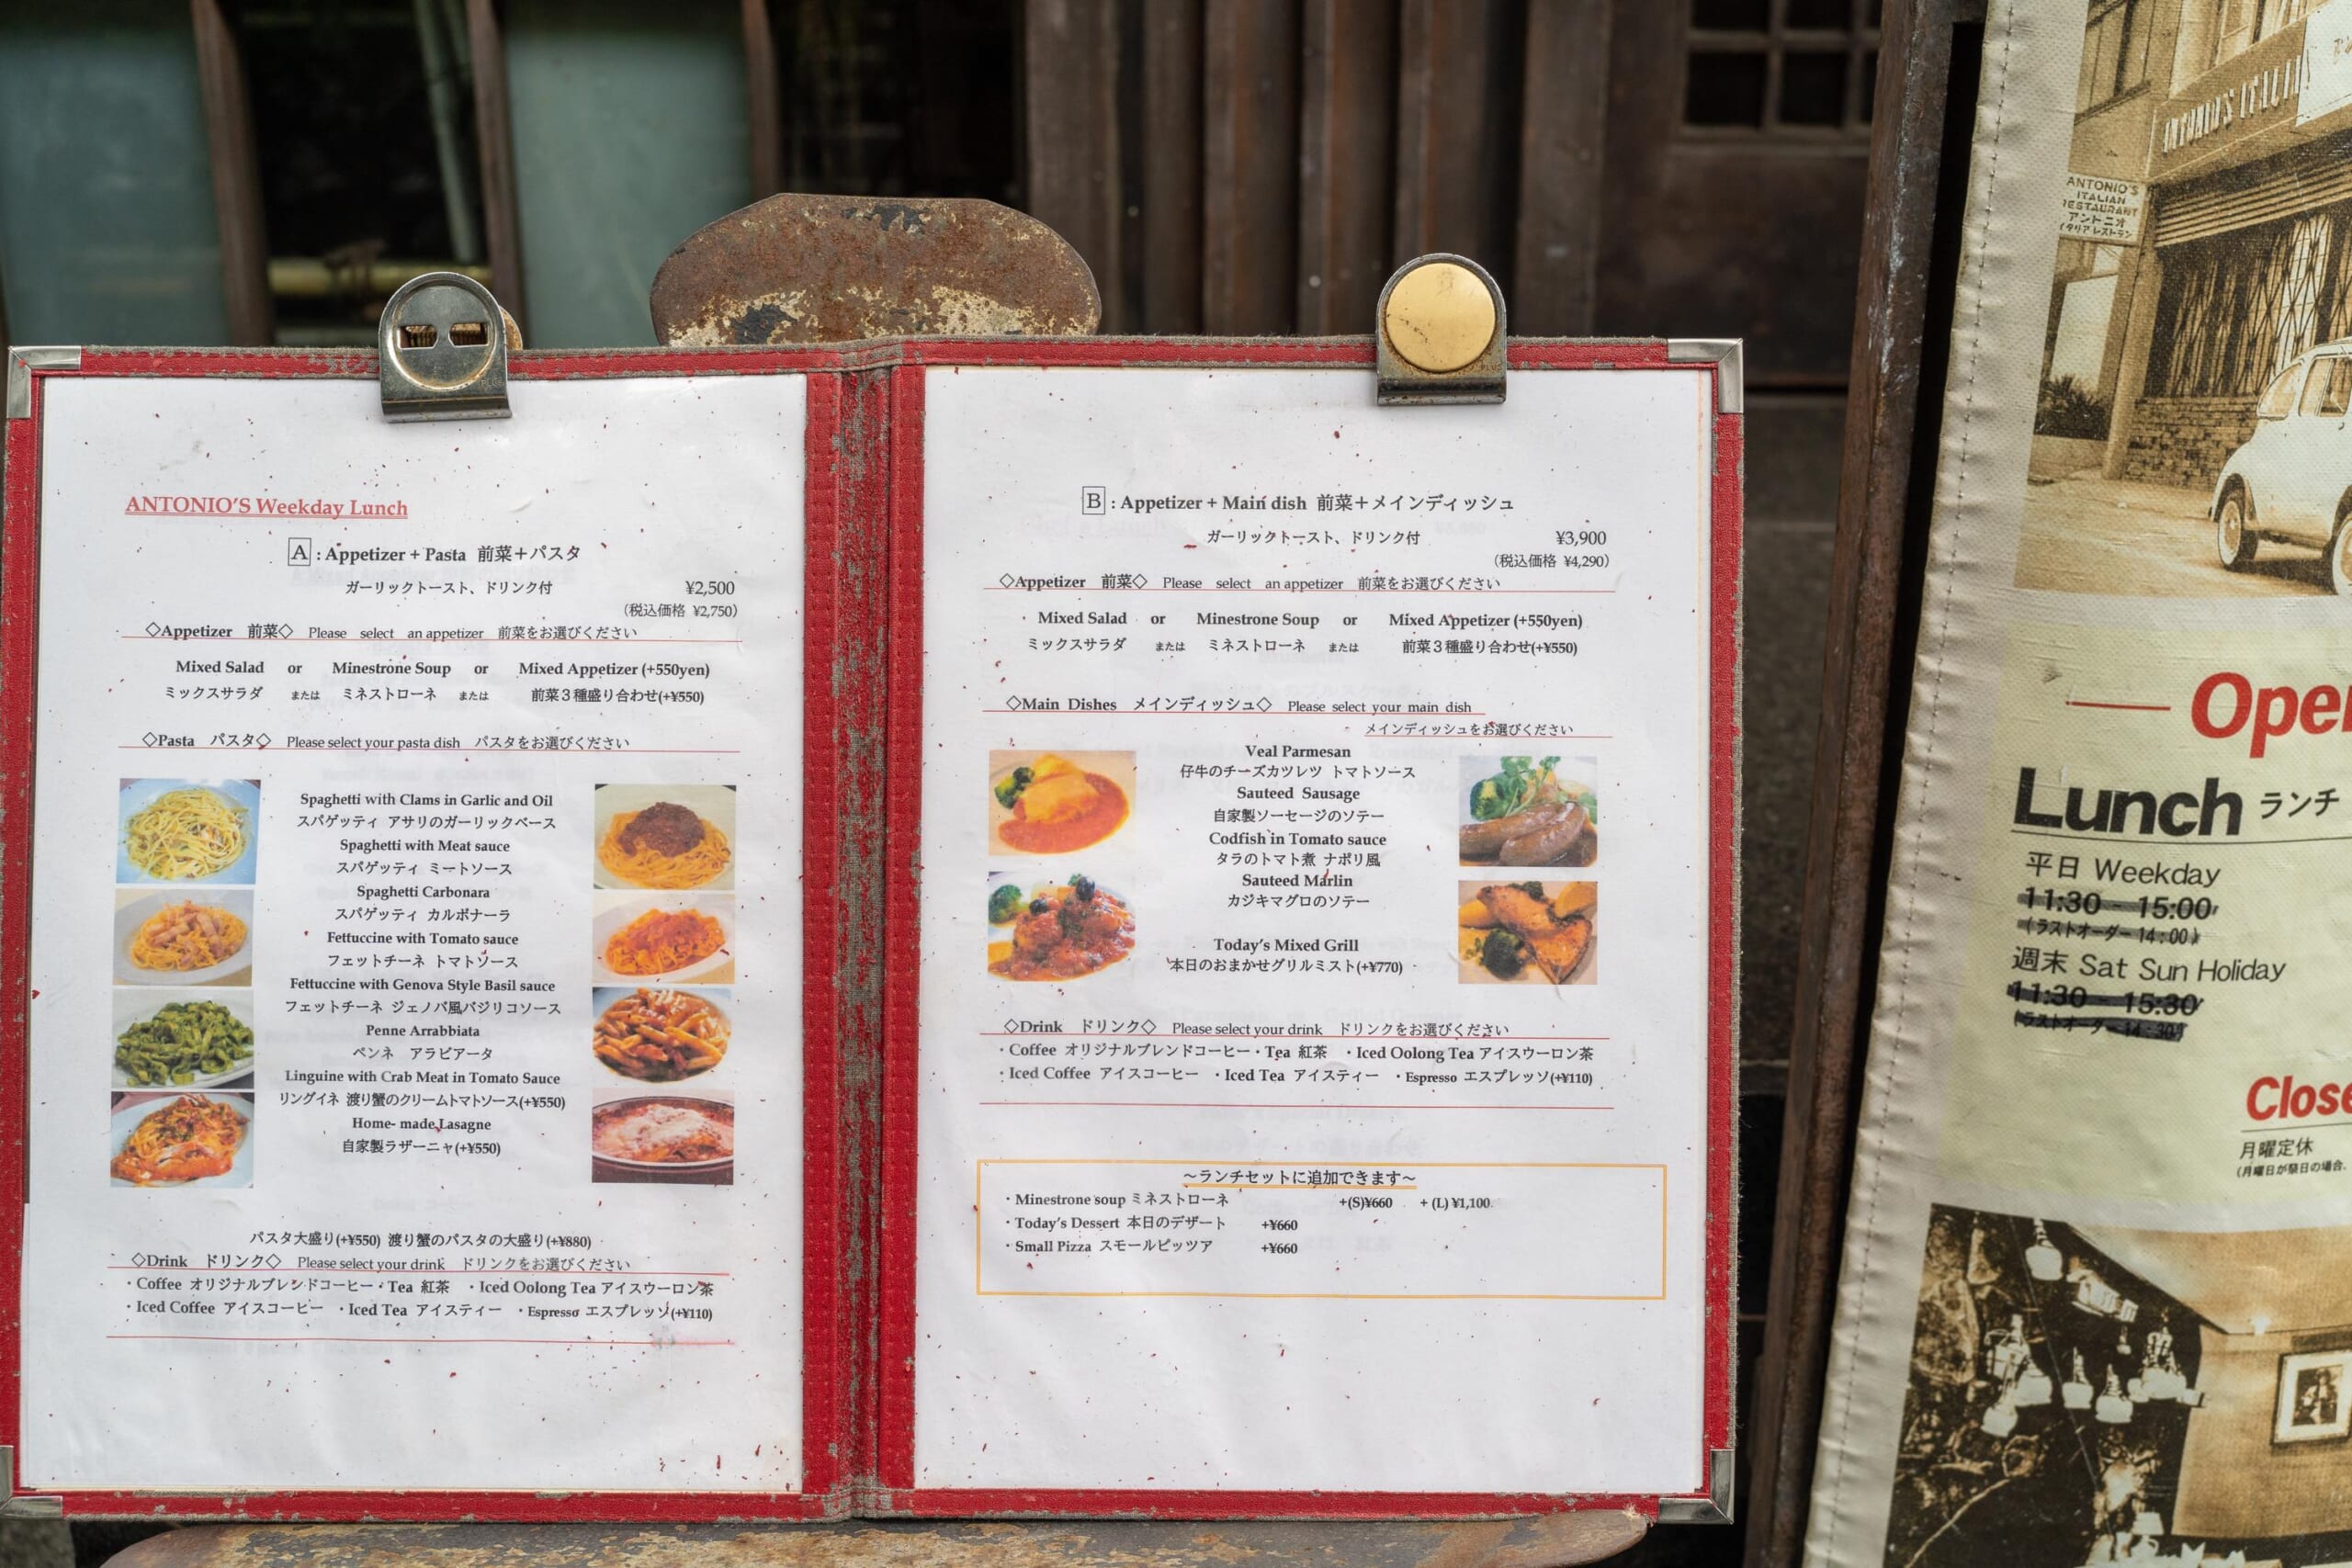 ANTONIO'S Weekday Lunch
A : Appetizer + Pasta 前菜+パスタ
ガーリックトースト、ドリンク付 ¥2,500
(税込価格 ¥2,750)
◇Appetizer 前菜◇ Please select an appetizer 前菜をお選びください
Mixed Salad or Minestrone Soup or Mixed Appetizer (+550yen)
ミックスサラダ または ミネストローネ または 前菜3種盛り合わせ(+¥550)
◇Pasta パスタ◇ Please select your pasta dish パスタをお選びください
Spaghetti with Clams in Garlic and Oil
スパゲッティ アサリのガーリックベース
Spaghetti with Meat sauce
スパゲッティ ミートソース
Spaghetti Carbonara
スパゲッティ カルボナーラ
Fettuccine with Tomato sauce
フェットチーネ トマトソース
Fettuccine with Genova Style Basil sauce
フェットチーネ ジェノバ風バジリコソース
Penne Arrabbiata
ペンネ アラビアータ
Linguine with Crab Meat in Tomato Sauce
リングイネ 渡り蟹のクリームトマトソース(+¥550)
Home- made Lasagne
自家製ラザーニャ(+¥550)
パスタ大盛り(+¥550) 渡り蟹のパスタの大盛り(+¥880)
◇Drink ドリンク◇ Please select your drink ドリンクをお選びください
・Coffee オリジナルブレンドコーヒー・Tea 紅茶 ・Iced Oolong Tea アイスウーロン茶
・Iced Coffee アイスコーヒー ・Iced Tea アイスティー ・Espresso エスプレッソ(+¥110)
B : Appetizer + Main dish 前菜+メインディッシュ
ガーリックトースト、ドリンク付 ¥3,900
(税込価格 ¥4,290)
◇Appetizer 前菜◇ Please select an appetizer 前菜をお選びください
Mixed Salad or Minestrone Soup or Mixed Appetizer (+550yen)
ミックスサラダ または ミネストローネ または 前菜3種盛り合わせ(+¥550)
◇Main Dishes メインディッシュ◇ Please select your main dish
メインディッシュをお選びください
Veal Parmesan
仔牛のチーズカツレツ トマトソース
Sauteed Sausage
自家製ソーセージのソテー
Codfish in Tomato sauce
タラのトマト煮 ナポリ風
Sauteed Marlin
カジキマグロのソテー
Today's Mixed Grill
本日のおまかせグリルミスト(+¥770)
◇Drink ドリンク◇ Please select your drink ドリンクをお選びください
・Coffee オリジナルブレンドコーヒー・Tea 紅茶 ・Iced Oolong Tea アイスウーロン茶
・Iced Coffee アイスコーヒー ・Iced Tea アイスティー ・Espresso エスプレッソ(+¥110)
～ランチセットに追加できます～
・Minestrone soup ミネストローネ +(S)¥660 + (L) ¥1,100
・Today's Dessert 本日のデザート +¥660
・Small Pizza スモールピッツア +¥660
ANTONIO'S
ITALIAN
RESTAURANT
アントニオ
イタリア レストラン
Lunch ランチ
平日 Weekday
11:30 - 15:00
(ラストオーダー 14:00)
週末 Sat Sun Holiday
11:30 - 15:30
(ラストオーダー 14:30)
月曜定休
(月曜日が祭日の場合、